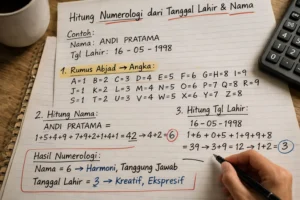 Hitung Numerologi dari Tanggal Lahir & Nama
Contoh:
Nama: ANDI PRATAMA
Tgl Lahir: 16 - 05 - 1998
1. Rumus Abjad → Angka:
A=1 B=2 C=3 D=4 E=5 F=6 G=H=8 I=9
J=1 K=2 L=3 M=4 N=5 O=6 P=7 Q=8 R=9
S=1 T=2 U=3 V=4 W=5 X=6 Y=7 Z=8
2. Hitung Nama:
ANDI PRATAMA =
1+5+4+9 + 7+9+1+2+1+4+1 = 42 → 4+2 = 6
3. Hitung Tgl Lahir:
16 - 05 - 1998
1+6 + 0+5 + 1+9+9+8
= 39 → 3+9 = 12 → 1+2 = 3
Hasil Numerologi:
Nama = 6 → Harmoni, Tanggung Jawab
Tanggal Lahir = 3 → Kreatif, Ekspresif